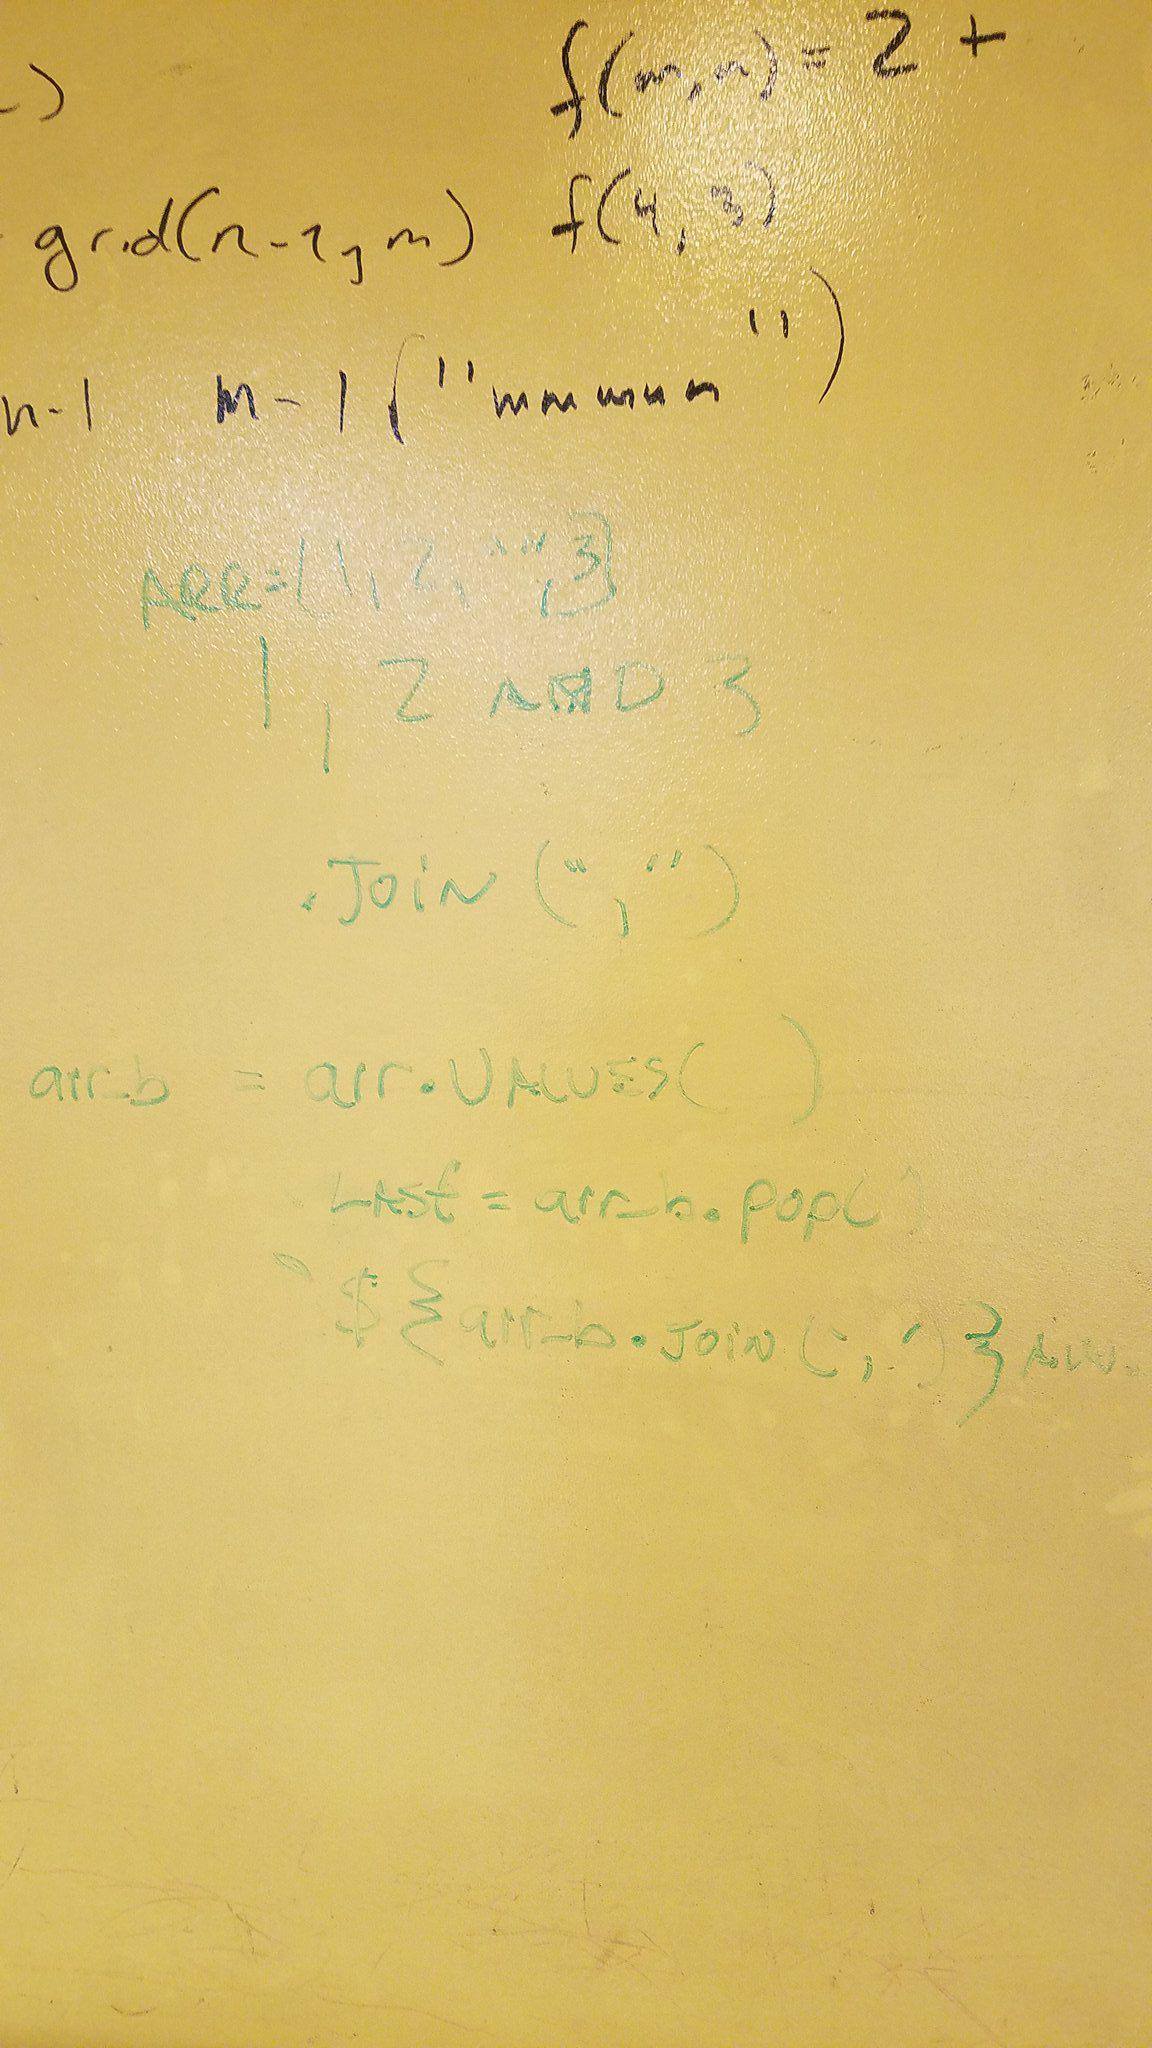 f(m,n) = 2 +
grid(n-1, m) f(4,3)
n-1 m-1 ("            ")
ARR=[1, 2, "", 3]
1, 2 AND 3
.JOIN (",")
arr_b = arr.VALUES( )
LAST = arr_b.pop()
`${arr_b.JOIN(', ')}